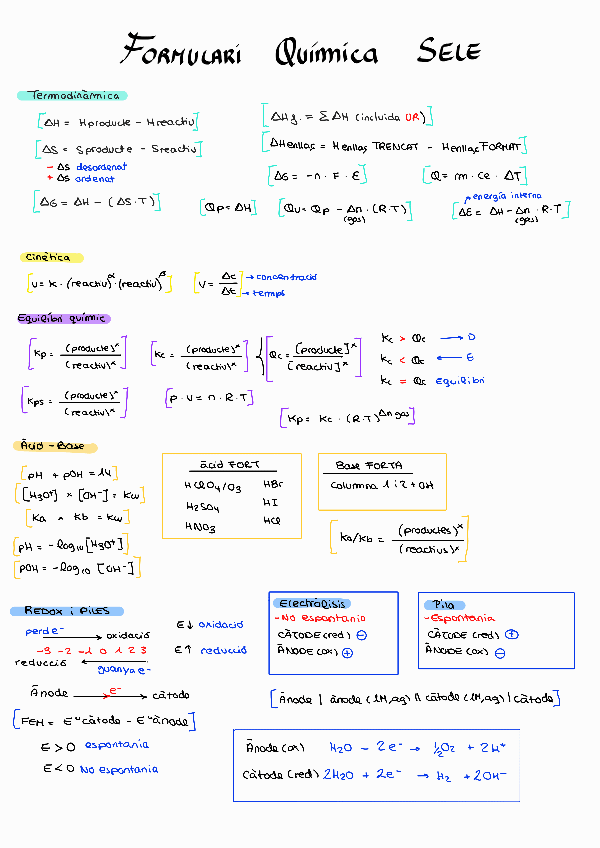 FORMULARI QUÍMICA SELE
Termodinàmica
[ΔH = Hproducte - Hreactiu]
[ΔHg. = Σ ΔH (incluida UR)]
[ΔS = Sproducte - Sreactiu]
[ΔHenllaç = Henllaç TRENCAT - Henllaç FORMAT]
- ΔS desordenat
+ ΔS ordenat
[ΔG = -n · F · E]
[Q = m · ce · ΔT]
[ΔG = ΔH - (ΔS·T)]
[Qp = ΔH]
[Qv = Qp - Δn · (R·T)]
(gas)
energia interna
[ΔE = ΔH - Δn · R·T]
(gas)
Cinètica
[v = k · (reactiu)^α · (reactiu)^β]
[V = Δc / Δt]
→ concentració
→ temps
Equilibri químic
[Kp = (producte)^x / (reactiu)^x]
[Kc = (producte)^x / (reactiu)^x]
[Qc = [producte]^x / [reactiu]^x]
Kc > Qc → D
Kc < Qc ← E
Kc = Qc Equilibri
[Kps = (producte)^x / (reactiu)^x]
[P · V = n · R · T]
[Kp = Kc · (R·T)^Δn gas]
Àcid - Base
[pH + pOH = 14]
[[H3O+] × [OH-] = Kw]
[Ka × Kb = Kw]
[pH = -log10 [H3O+]]
[pOH = -log10 [OH-]]
àcid FORT
HClO4/O3 HBr
H2SO4 HI
HNO3 HCl
Base FORTA
Columna 1 i 2 + OH
[Ka/Kb = (productes)^x / (reactius)^x]
REDOX i PILES
perd e-
→ oxidació
-3 -2 -1 0 1 2 3
reducció ←
guanya e-
E↓ oxidació
E↑ reducció
Electròlisis
- No espontania
CÀTODE (red) ⊖
ÀNODE (ox) ⊕
Pila
- Espontania
CÀTODE (red) ⊕
ÀNODE (ox) ⊖
Ànode e- → càtode
[Ànode | ànode (1M, aq) || càtode (1M, aq) | càtode]
[FEM = E° càtode - E° ànode]
E > 0 espontania
E < 0 No espontania
Ànode (ox) H2O - 2e- → 1/2 O2 + 2H+
Càtode (red) 2H2O + 2e- → H2 + 2OH-